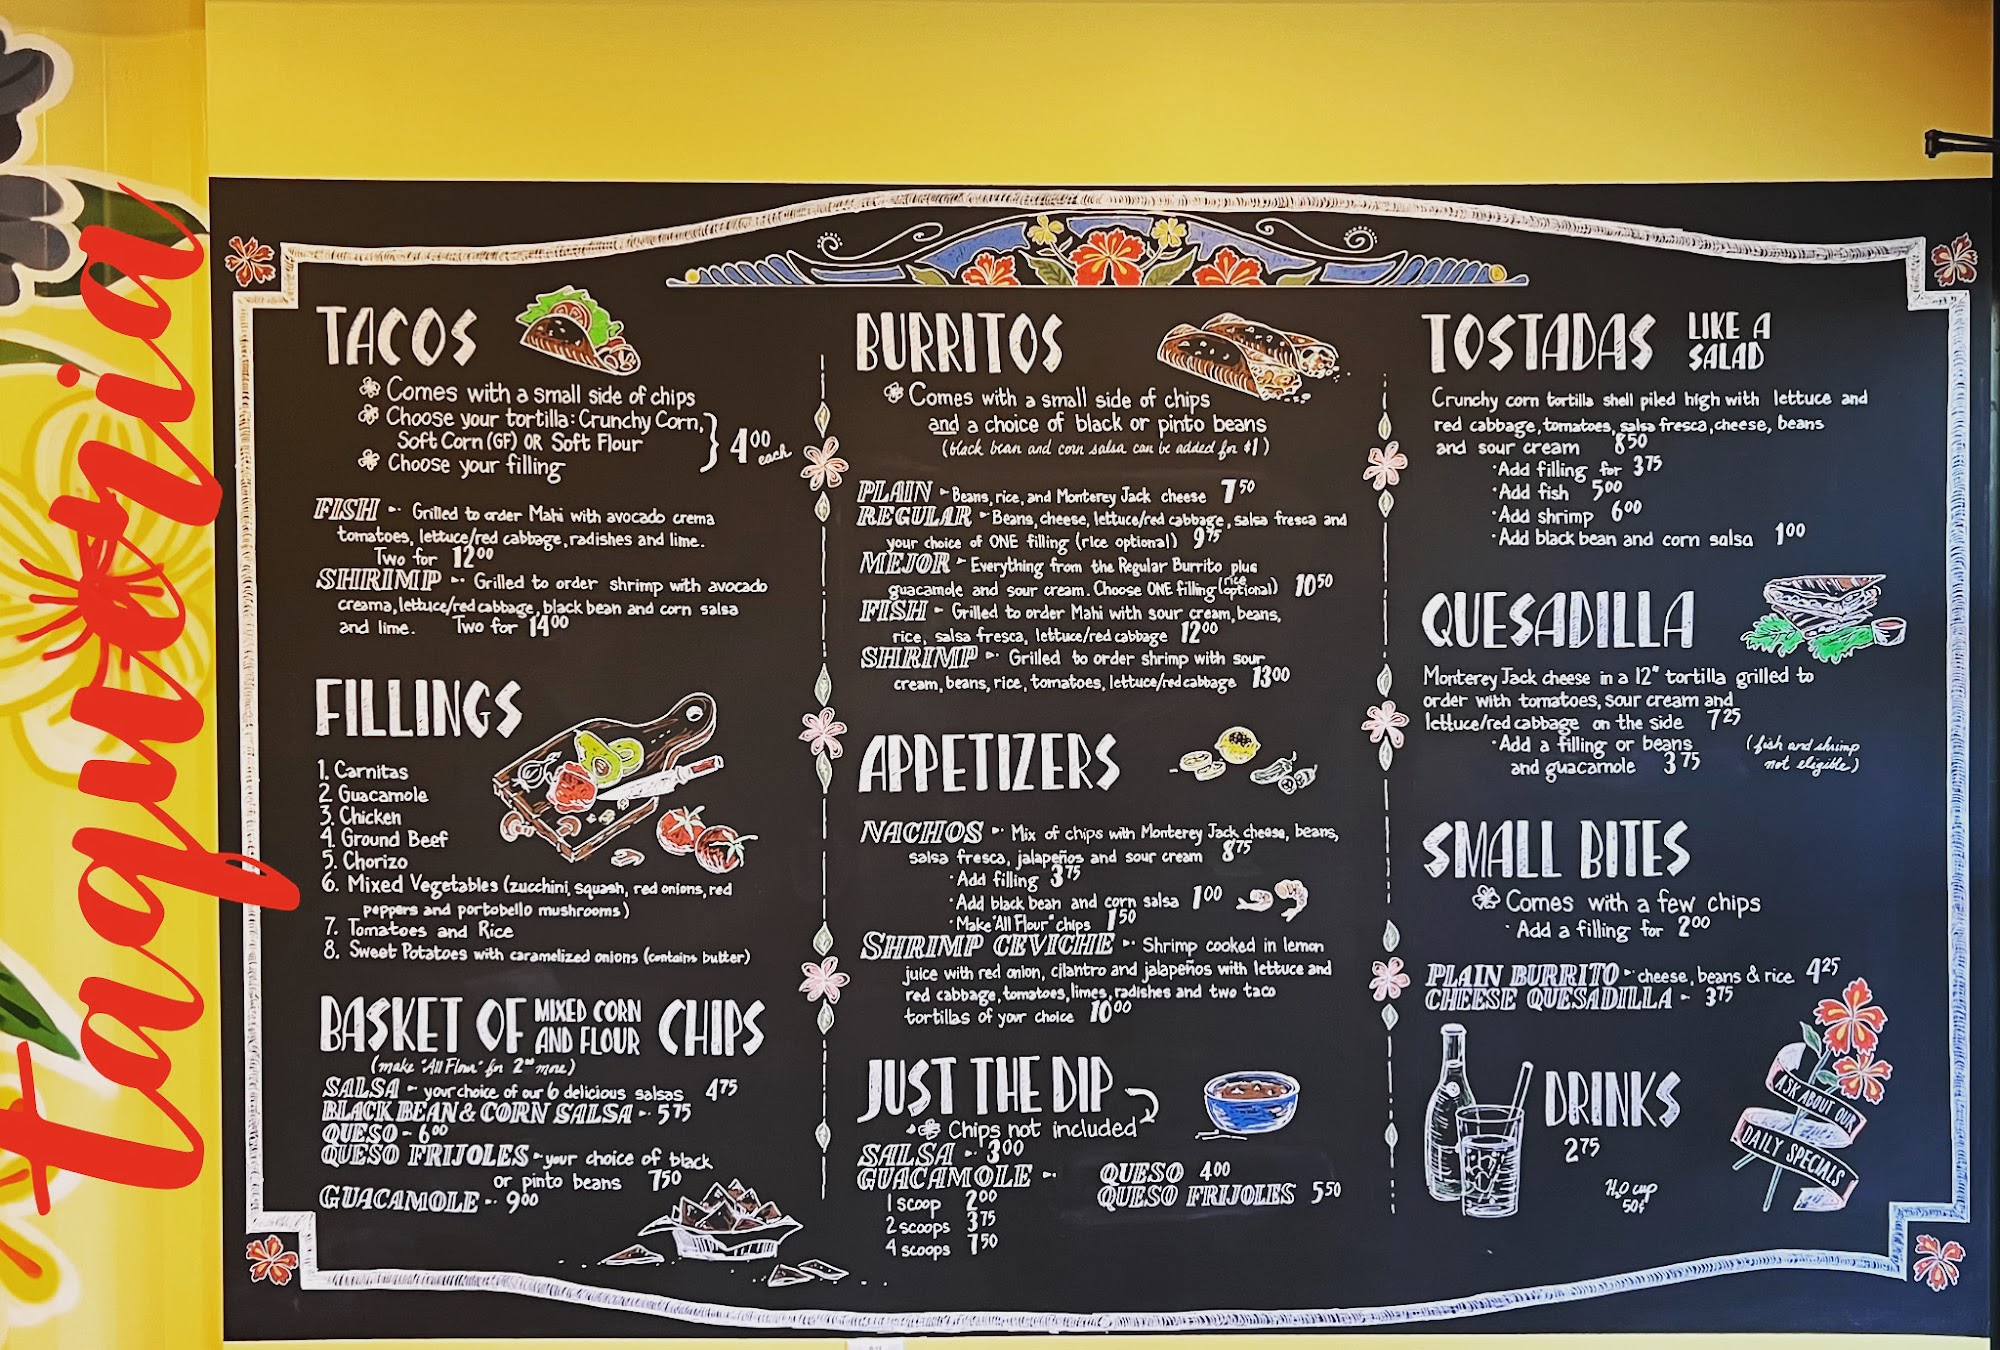 taqueria
TACOS
Comes with a small side of chips
Choose your tortilla: Crunchy Corn,
Soft Corn (GF) OR Soft Flour
Choose your filling
4.00 each
FISH - Grilled to order Mahi with avocado crema
tomatoes, lettuce/red cabbage, radishes and lime.
Two for 12.00
SHRIMP - Grilled to order shrimp with avocado
creama, lettuce/red cabbage, black bean and corn salsa
and lime. Two for 14.00
FILLINGS
1. Carnitas
2. Guacamole
3. Chicken
4. Ground Beef
5. Chorizo
6. Mixed Vegetables (zucchini, squash, red onions, red
peppers and portobello mushrooms)
7. Tomatoes and Rice
8. Sweet Potatoes with caramelized onions (contains butter)
BASKET OF MIXED CORN AND FLOUR CHIPS
(make "All Flour" for 2.00 more)
SALSA - your choice of our 6 delicious salsas 4.75
BLACK BEAN & CORN SALSA - 5.75
QUESO - 6.00
QUESO FRIJOLES - your choice of black
or pinto beans 7.50
GUACAMOLE - 9.00
BURRITOS
Comes with a small side of chips
and a choice of black or pinto beans
(black bean and corn salsa can be added for $1)
PLAIN - Beans, rice, and Monterey Jack cheese 7.50
REGULAR - Beans, cheese, lettuce/red cabbage, salsa fresca and
your choice of ONE filling (rice optional) 9.75
MEJOR - Everything from the Regular Burrito plus
guacamole and sour cream. Choose ONE filling (rice optional) 10.50
FISH - Grilled to order Mahi with sour cream, beans,
rice, salsa fresca, lettuce/red cabbage 12.00
SHRIMP - Grilled to order shrimp with sour
cream, beans, rice, tomatoes, lettuce/red cabbage 13.00
APPETIZERS
NACHOS - Mix of chips with Monterey Jack cheese, beans,
salsa fresca, jalapeños and sour cream 8.75
· Add filling 3.75
· Add black bean and corn salsa 1.00
· Make "All Flour" chips 1.50
SHRIMP CEVICHE - Shrimp cooked in lemon
juice with red onion, cilantro and jalapeños with lettuce and
red cabbage, tomatoes, limes, radishes and two taco
tortillas of your choice 10.00
JUST THE DIP
Chips not included
SALSA - 3.00
GUACAMOLE -
1 scoop 2.00
2 scoops 3.75
4 scoops 7.50
QUESO 4.00
QUESO FRIJOLES 5.50
TOSTADAS LIKE A SALAD
Crunchy corn tortilla shell piled high with lettuce and
red cabbage, tomatoes, salsa fresca, cheese, beans
and sour cream 8.50
· Add filling for 3.75
· Add fish 5.00
· Add shrimp 6.00
· Add black bean and corn salsa 1.00
QUESADILLA
Monterey Jack cheese in a 12" tortilla grilled to
order with tomatoes, sour cream and
lettuce/red cabbage on the side 7.25
· Add a filling or beans
and guacamole 3.75
(fish and shrimp
not eligible)
SMALL BITES
Comes with a few chips
· Add a filling for 2.00
PLAIN BURRITO - cheese, beans & rice 4.25
CHEESE QUESADILLA - 3.75
DRINKS
2.75
H2O cup
50¢
ASK ABOUT OUR
DAILY SPECIALS